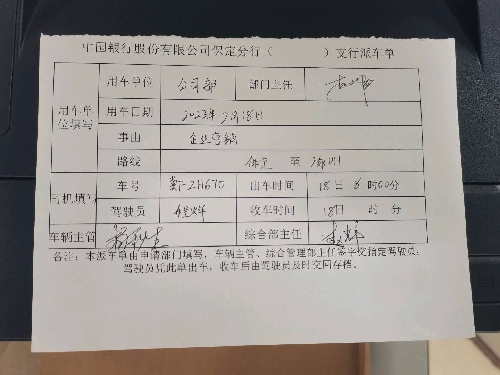 中国银行股份有限公司保定分行（ ）支行派车单
用车单位填写 用车单位 公司部 部门主任
用车日期 2023年2月18日
事由 企业营销
路线 保定 至
司机填写 车号 冀F-2H670 出车时间 18日 8时00分
驾驶员 收车时间 18日 时 分
车辆主管 综合部主任
备注：本派车单由申请部门填写，车辆主管、综合管理部主任签字后指定驾驶员，
驾驶员凭此单出车，收车后由驾驶员及时交回存档。